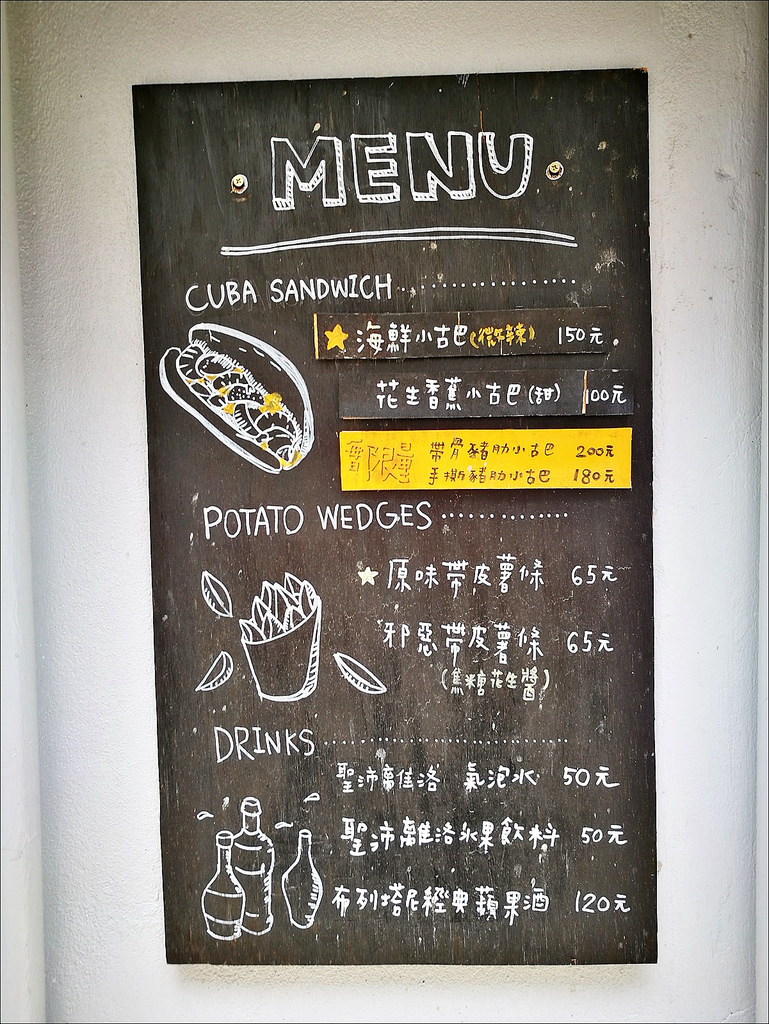 MENU
CUBA SANDWICH
海鮮小古巴(微辣) 150元
花生香蕉小古巴(甜) 100元
限量 帶骨豬肋小古巴 200元
手撕豬肋小古巴 180元
POTATO WEDGES
原味帶皮薯條 65元
邪惡帶皮薯條 65元
(焦糖花生醬)
DRINKS
聖沛離佳洛 氣泡水 50元
聖沛離洛水果飲料 50元
布列塔尼經典蘋果酒 120元